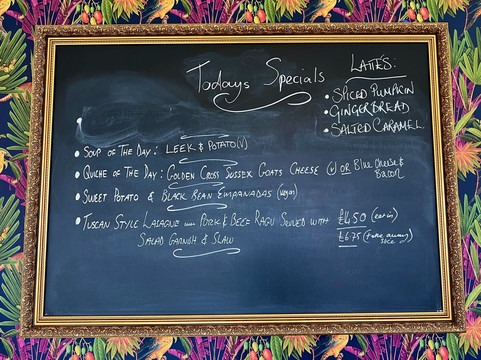 Todays Specials
LATTES:
• SPICED PUMPKIN
• GINGERBREAD
• SALTED CARAMEL
• SOUP OF THE DAY: LEEK & POTATO (V)
• QUICHE OF THE DAY: GOLDEN CROSS SUSSEX GOATS CHEESE (V) OR Blue Cheese & Bacon
• SWEET POTATO & BLACK BEAN EMPANADAS (vegan)
• TUSCAN STYLE LASAGNE PORK & BEEF RAGU SERVED WITH £14.50 (eat in)
SALAD GARNISH & SLAW £6.75 (take away slice)